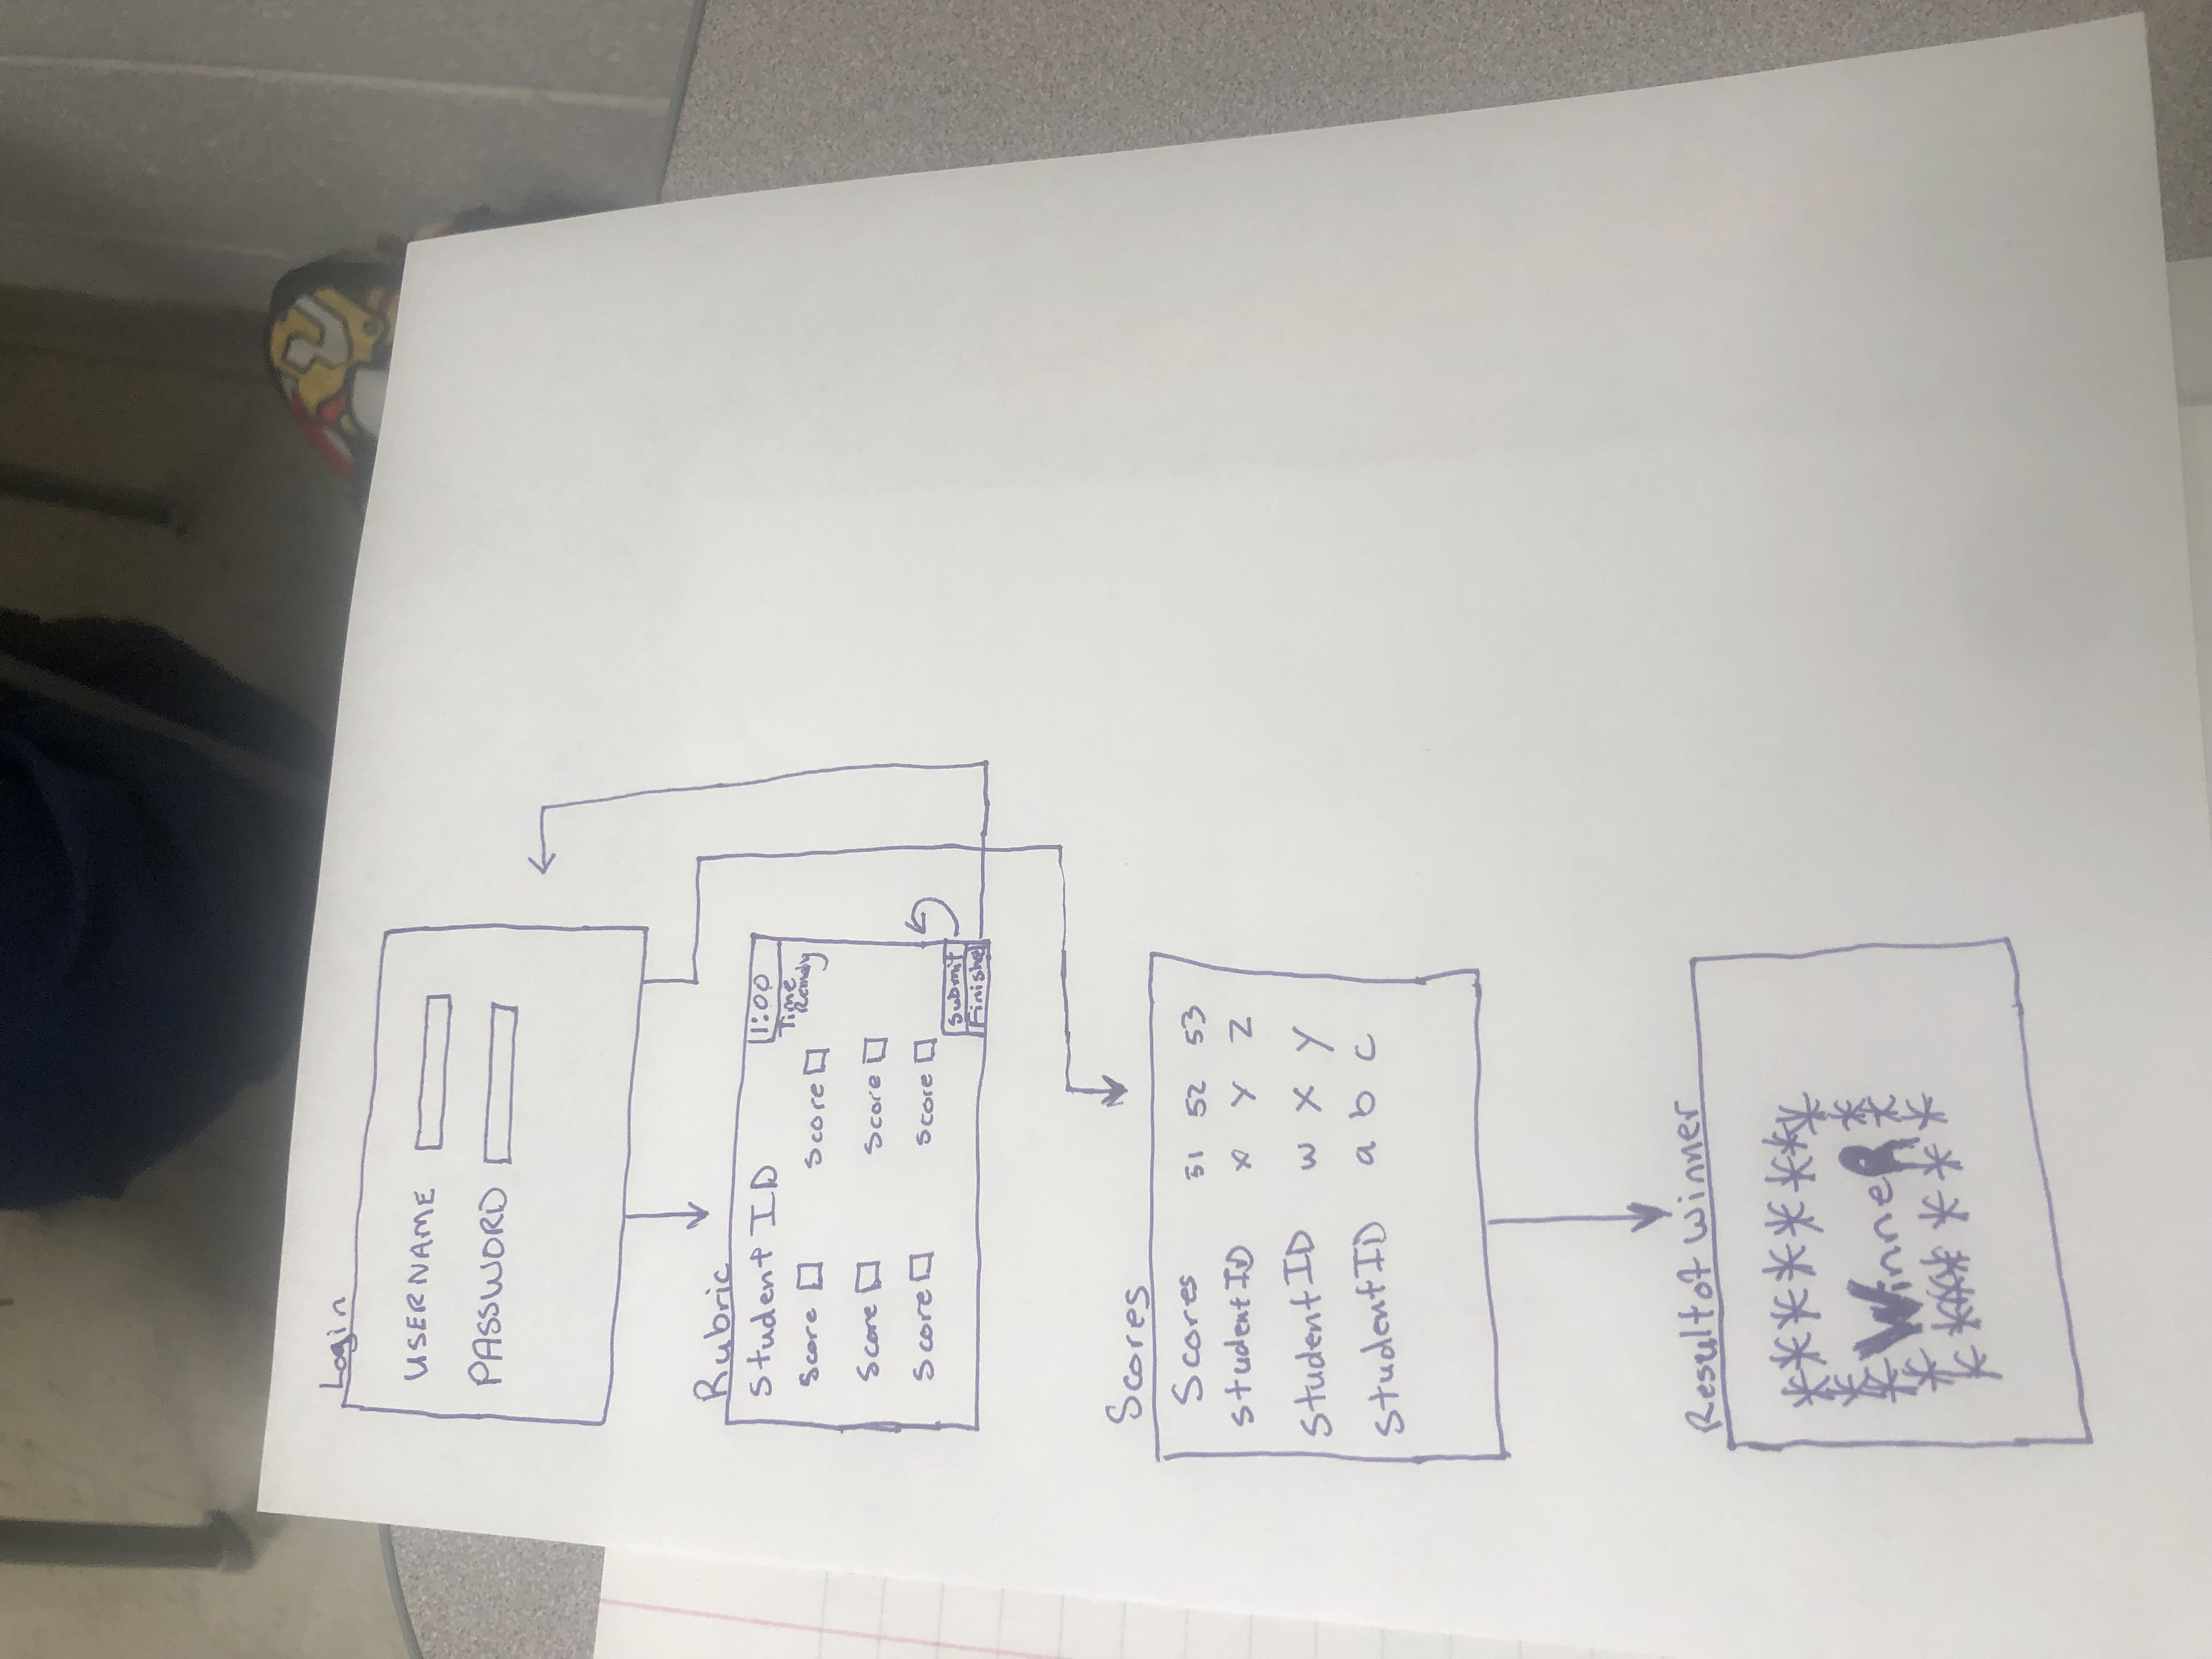 Login
USERNAME
PASSWORD
Rubric
Student ID 1:00
Time
Score Score
Score Score
Score Score
Submit
Finishe
Scores
Scores S1 S2 S3
Student ID X Y Z
Student ID W X Y
Student ID a b c
Result of Winner
WinneR